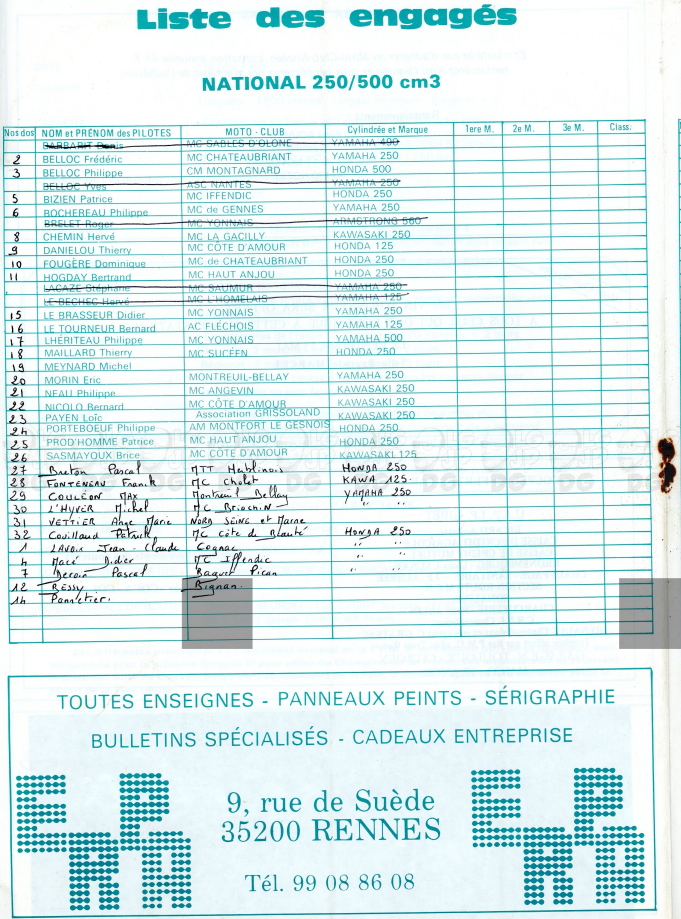 Liste des engagés
NATIONAL 250/500 cm3
Nos dos NOM et PRÉNOM des PILOTES MOTO - CLUB Cylindrée et Marque 1ere M. 2e M. 3e M. Class.
BARBARIT Denis MC SABLES D'OLONE YAMAHA 490
2 BELLOC Frédéric MC CHATEAUBRIANT YAMAHA 250
3 BELLOC Philippe CM MONTAGNARD HONDA 500
BELLOC Yves ASC NANTES YAMAHA 250
5 BIZIEN Patrice MC IFFENDIC HONDA 250
6 ROCHEREAU Philippe MC de GENNES YAMAHA 250
BRELET Roger MC YONNAIS ARMSTRONG 560
8 CHEMIN Hervé MC LA GACILLY KAWASAKI 250
9 DANIELOU Thierry MC CÔTE D'AMOUR HONDA 125
10 FOUGÈRE Dominique MC de CHATEAUBRIANT HONDA 250
11 HOGDAY Bertrand MC HAUT ANJOU HONDA 250
LACAZE Stéphane MC SAUMUR YAMAHA 250
LE BECHEC Hervé MC L'HOMELAIS YAMAHA 125
15 LE BRASSEUR Didier MC YONNAIS YAMAHA 250
16 LE TOURNEUR Bernard AC FLÉCHOIS YAMAHA 125
17 LHÉRITEAU Philippe MC YONNAIS YAMAHA 500
18 MAILLARD Thierry MC SUCÉEN HONDA 250
19 MEYNARD Michel
20 MORIN Eric MONTREUIL-BELLAY YAMAHA 250
21 NEAU Philippe MC ANGEVIN KAWASAKI 250
22 NICOLO Bernard MC CÔTE D'AMOUR KAWASAKI 250
23 PAYEN Loïc Association GRISSOLAND KAWASAKI 250
24 PORTEBOEUF Philippe AM MONTFORT LE GESNOIS HONDA 250
25 PROD'HOMME Patrice MC HAUT ANJOU HONDA 250
26 SASMAYOUX Brice MC CÔTE D'AMOUR KAWASAKI 125
27 Breton Pascal MTT Herblinois HONDA 250
28 FONTENEAU Frank MC Cholet KAWA 125
29 COULÉON MAX Montreuil Bellay YAMAHA 250
30 L'HYVER Michel MC Briochin
31 VETTIER Ange Marie NORD SEINE et Marne
32 Couillaud Patrick MC côte de Beauté HONDA 250
1 LAVOIR Jean-Claude Cognac " "
4 Macé Didier MC Iffendic " "
7 Derain Pascal Baguer Pican " "
12 BESSY Bignan.
14 Pannetier.
TOUTES ENSEIGNES - PANNEAUX PEINTS - SÉRIGRAPHIE
BULLETINS SPÉCIALISÉS - CADEAUX ENTREPRISE
EPRA
9, rue de Suède
35200 RENNES
Tél. 99 08 86 08
EPRA